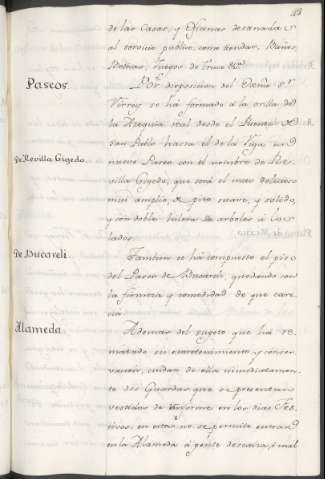 43
de las Casas, y Oficinas destinadas
al servicio publico como tiendas, Baños,
Boticas, Juegos de Trucos &c.
Paseos
Por disposicion del Exmo Sor
Virrey se ha formado a la orilla de
la Azequia real desde el Puente de
San Pablo hasta el de la Viga, un
De Revilla Gigedo
nuevo Paseo con el nombre de Re-
villa Gigedo, que será el mas delicioso
mui amplio, de piso suave, y solido,
y con doble hilera de arboles a los
lados.
De Bucareli
Tambien se ha compuesto el piso
del Paseo de Bucareli, quedando con
la firmeza y comodidad de que care-
cia.
Alameda
Ademas del sugeto que ha re-
matado su entretenimiento y conser-
vacion, cuidan de ella inmediatamen-
te dos Guardas que se presentan
vestidos de uniforme en los dias Fes-
tivos, en estos no se permite entrar
en la Alameda á gente descalza, ó mal